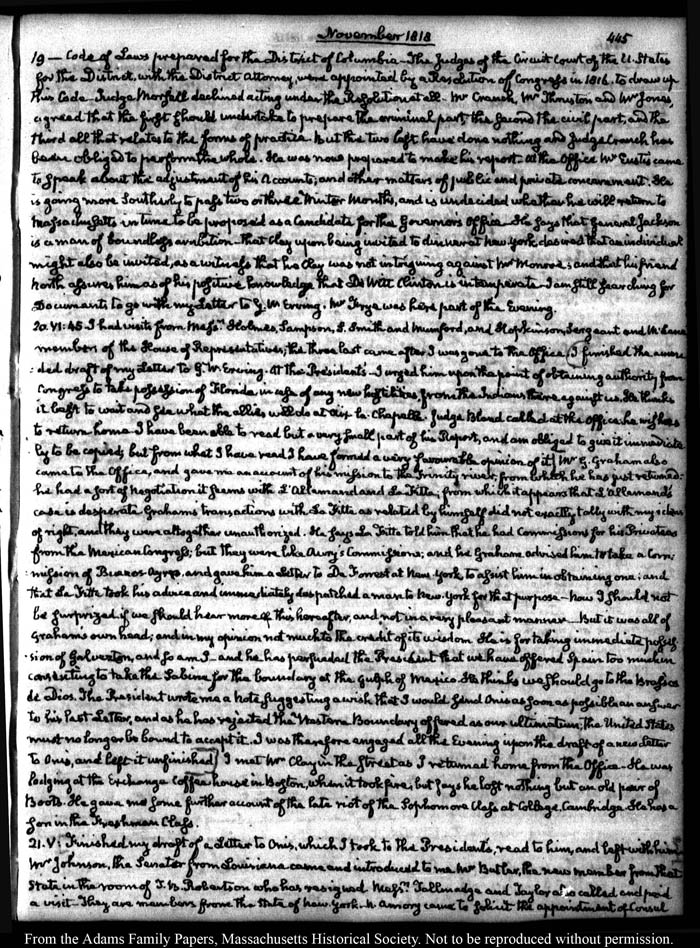 November 1818
445
19 — Code of Laws prepared for the District of Columbia — The Judges of the Circuit Court of the U. States
for the District, with the District Attorney, were appointed by a Resolution of Congress in 1816. to draw up
this Code. Judge Morsell declined acting under the Resolution at all. Mr Cranch, Mr Thruston and Mr Jones,
agreed that the first should undertake to prepare the criminal part, the second the civil part, and the
third all that relates to the forms of practice. But the two last have done nothing and Judge Cranch has
been obliged to perform the whole. He was now prepared to make his report. At the Office Mr Eustis came
to speak about the adjustment of his Accounts; and other matters of public and private concernment. He
is going more Southerly to pass two or three Winter Months, and is undecided whether he will return to
Massachusetts in time to be proposed as a Candidate for the Governors Office. He says that General Jackson
is a man of boundless ambition — that Clay upon being invited to dinner at New York, desired that an individual
might also be invited, as a witness that he Clay was not intriguing against Mr Monroe; and that his friend
North assures him as of his positive knowledge that De Witt Clinton is intemperate — I am still searching for
Documents to go with my Letter to G. W. Erving. Mr Frye was here part of the Evening.
20. VI:45 I had visits from Messrs Holmes, Sampson, S. Smith and Mumford, and Hopkinson, Sergeant and
members of the House of Representatives; the three last came after I was gone to the Office. I finished the amen-
ded draft of my Letter to G. W. Erving. At the Presidents — I urged him upon the point of obtaining authority from
Congress to take possession of Florida, in case of any new hostilities from the Indians there against us. He thinks
it best to wait and see what the allies will do at Aix la Chapelle. Judge Bland called at the Office. he wishes
to return home. I have been able to read but a very small part of his Report, and am obliged to give it immediate-
ly to be copied; but from what I have read I have formed a very favourable opinion of it. Mr G. Graham also
came to the Office, and gave me an account of his mission to the Trinity river, from which he has just returned.
he had a sort of Negotiation it seems with L'Allemand and La Fitte; from which it appears that L'Allemand's
case is desperate. Grahams transactions with La Fitte as related by himself did not exactly tally with my ideas
of right, and they were altogether unauthorized. He says La Fitte told him that he had Commissions for his Privateers
from the Mexican Congress; but they were like Aury's Commissions; and he Graham advised him to take a Com-
mission of Buenos Ayres, and gave him a Letter to De Forrest at New York, to assist him in obtaining one; and
that La Fitte took his advice and immediately despatched a man to New York for that purpose — Now I should not
be surprized if we should hear more of this hereafter, and not in a very pleasant manner — But it was all of
Grahams own head; and in my opinion not much to the credit of its wisdom. He is for taking immediate posses-
sion of Galveston, and so am I — and he has persuaded the President that we have offered Spain too much in
consenting to take the Sabine for the boundary at the Gulph of Mexico. He thinks we should go to the Brassos
de Dios. The President wrote me a Note suggesting a wish that I would send Onis as soon as possible an answer
to his last Letter, and as he has rejected the Western Boundary offered as our ultimatum, the United States
must no longer be bound to accept it. I was therefore engaged all the Evening upon the draft of a new Letter
to Onis, and left it unfinished. I met Mr Clay in the Street as I returned home from the Office. He was
lodging at the Exchange Coffee-house in Boston, when it took fire, but says he lost nothing but an old pair of
Boots. He gave me some further account of the late riot of the Sophomore Class at College, Cambridge. He has a
son in the Freshman Class.
21. V: Finished my draft of a Letter to Onis, which I took to the Presidents, read to him, and left with him.
Mr Johnson, the Senator from Louisiana came and introduced to me Mr Butler, the new member from that
State in the room of T. B. Robertson who has resigned. Messrs Tallmadge and Taylor also called and paid
a visit — They are members from the State of New York. N. Amory came to solicit the appointment of Consul
From the Adams Family Papers, Massachusetts Historical Society. Not to be reproduced without permission.